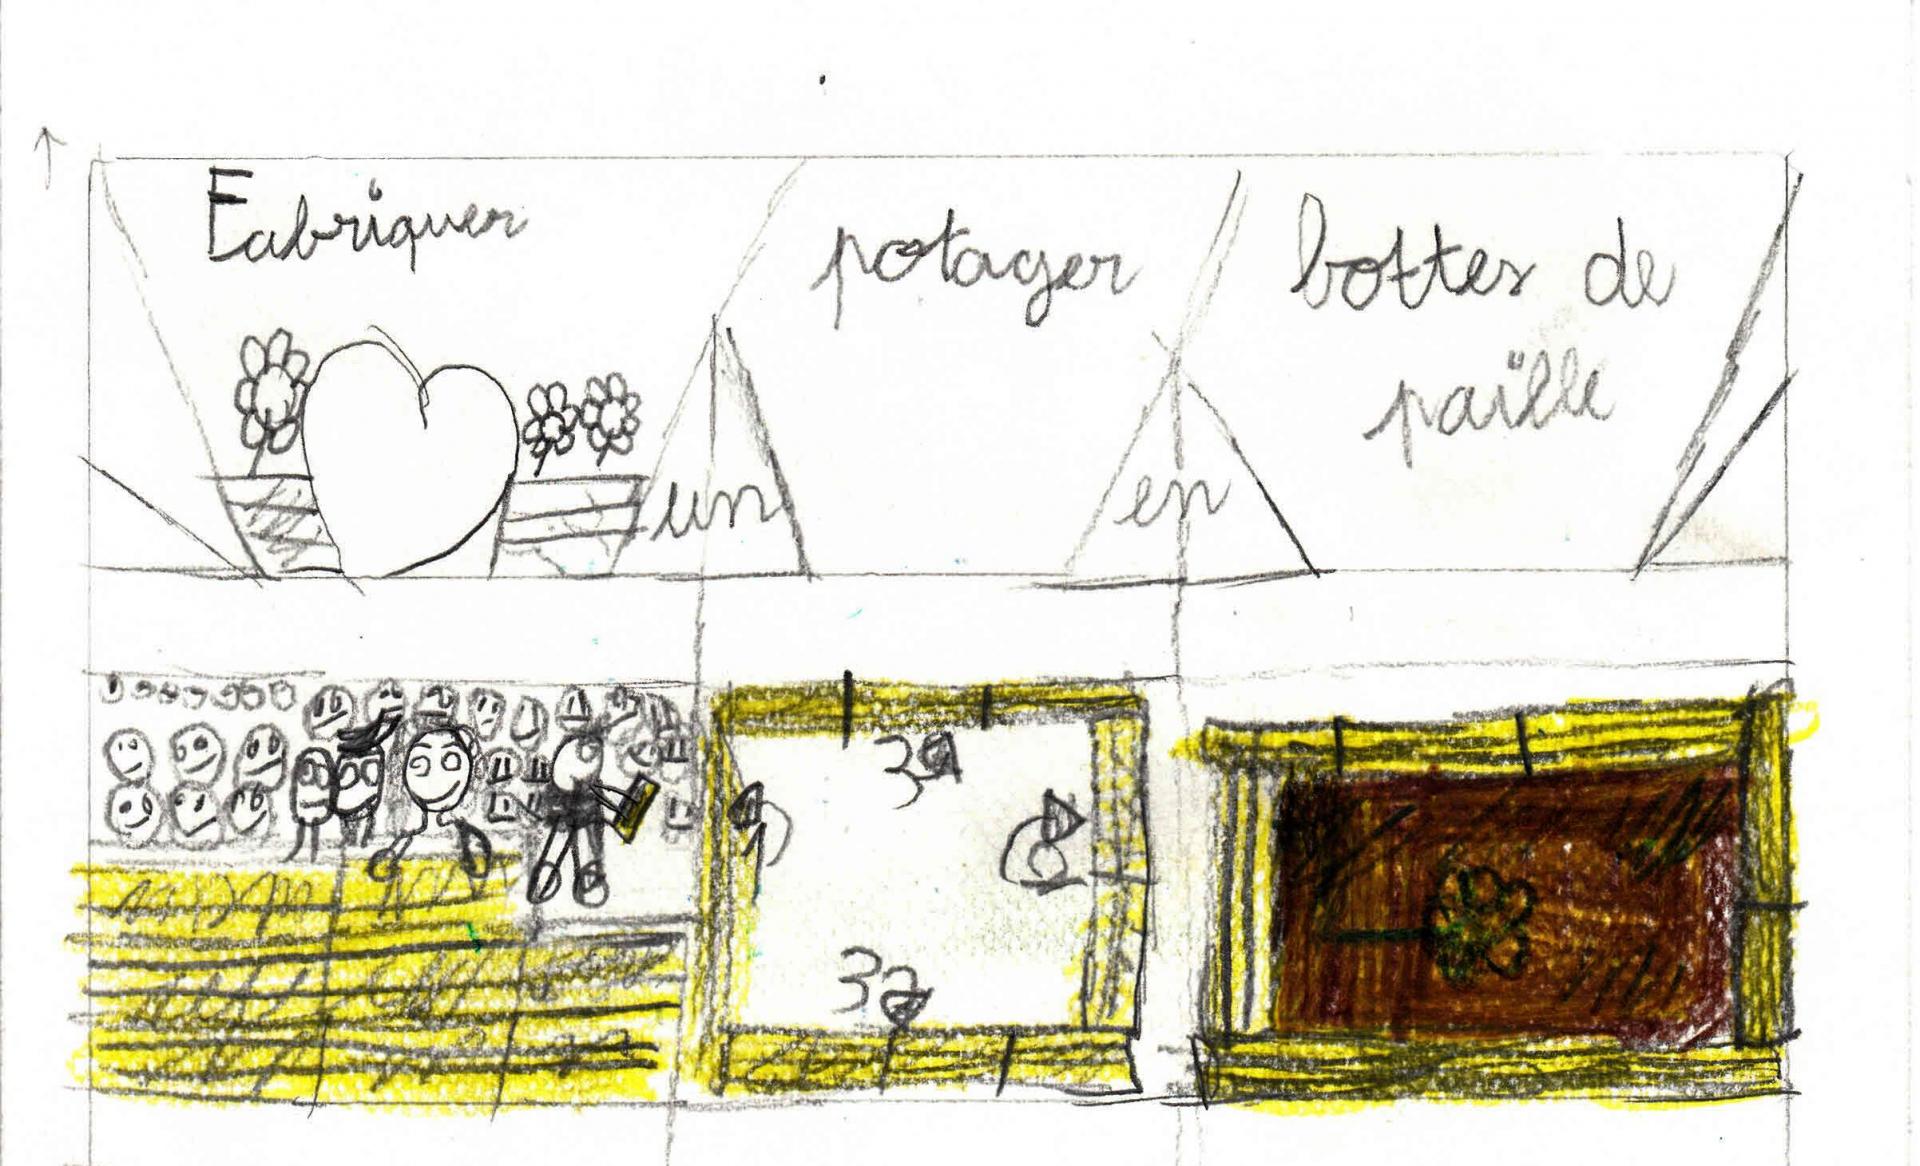 Fabriquer
un
potager
en
bottes de
païlle